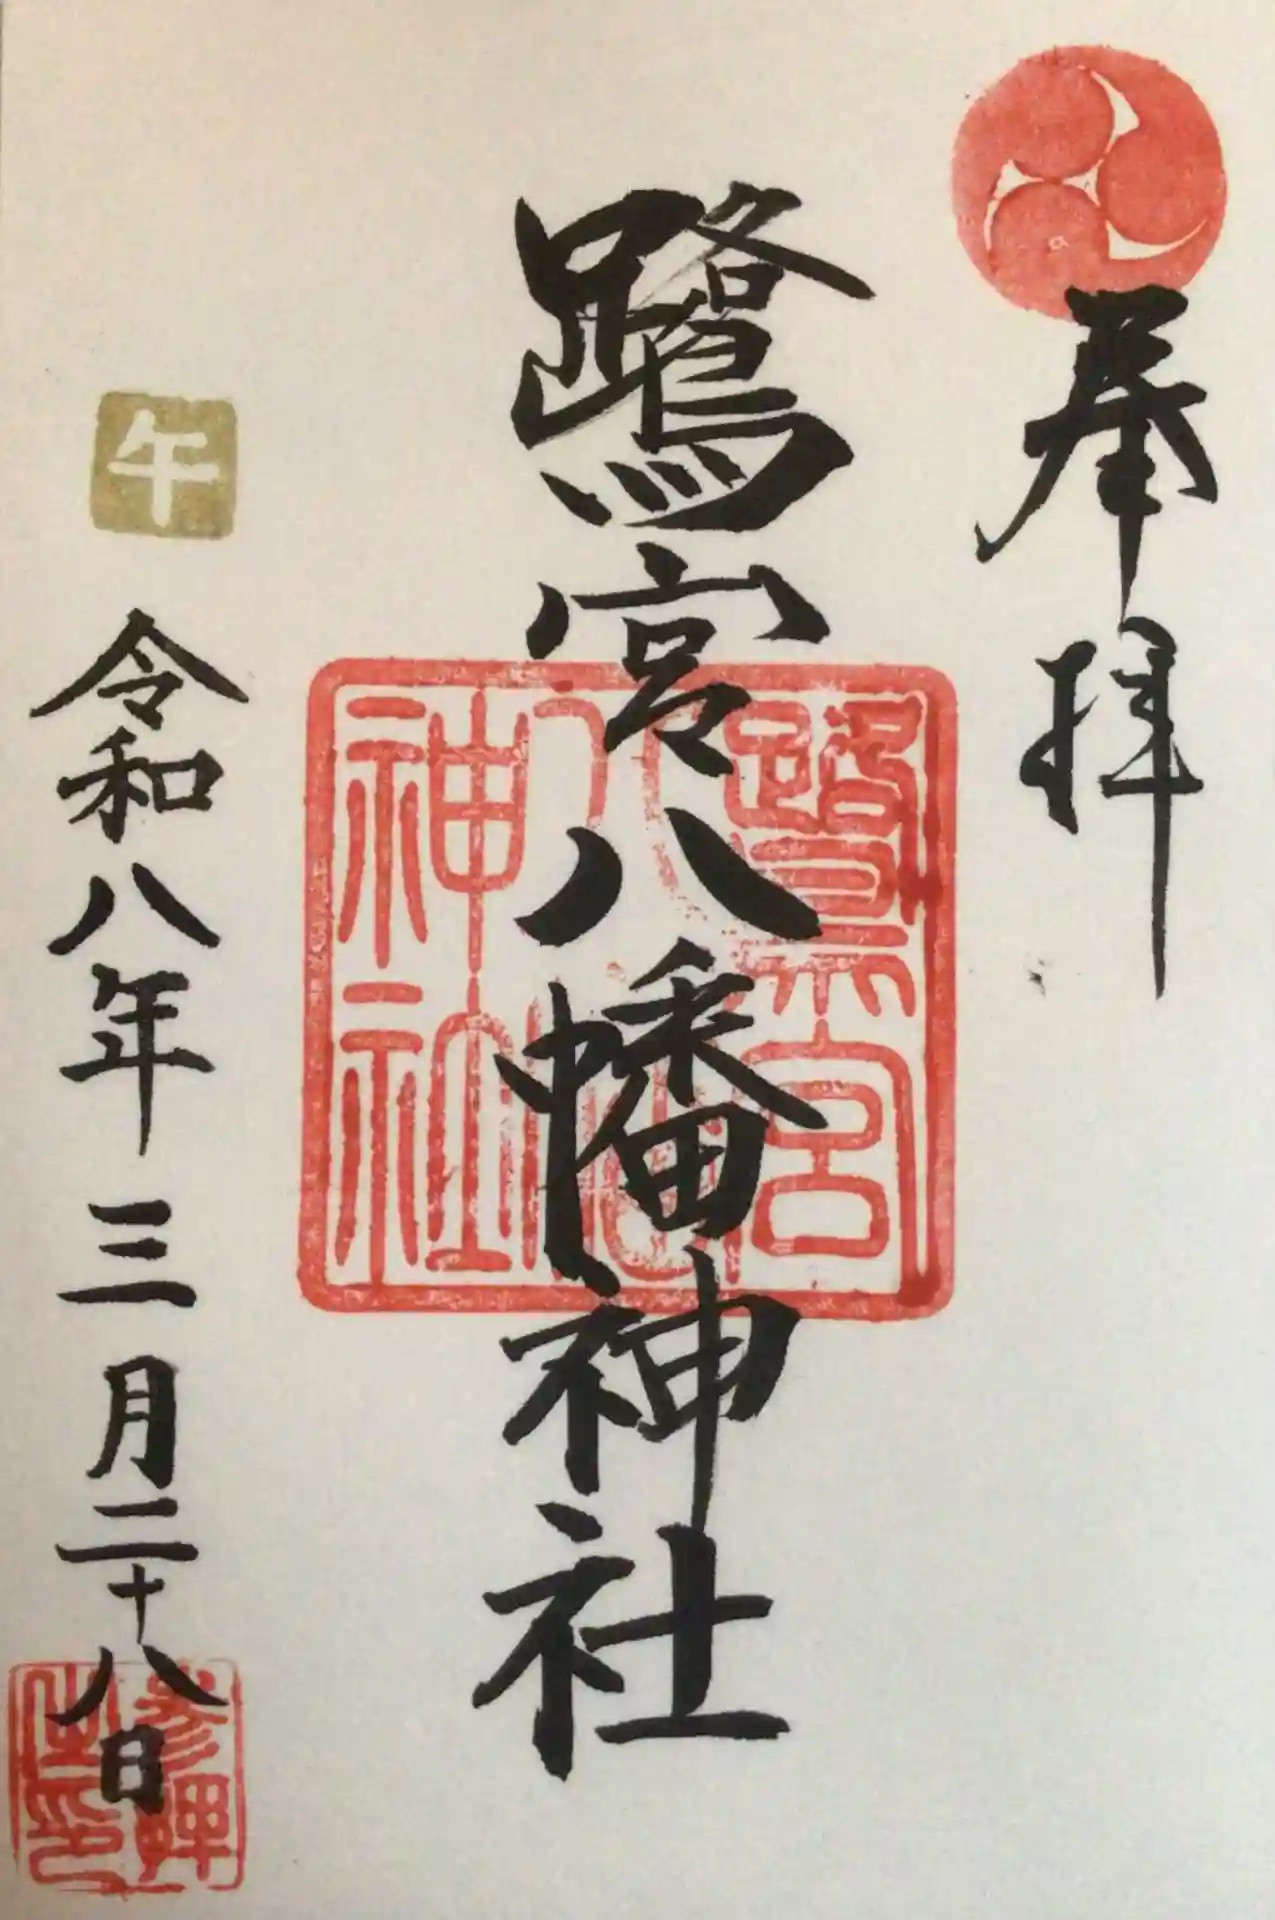 奉拝
鷺宮八幡神社
鷺宮
八幡
神社
午
令和八年三月二十八日
参拝
之印